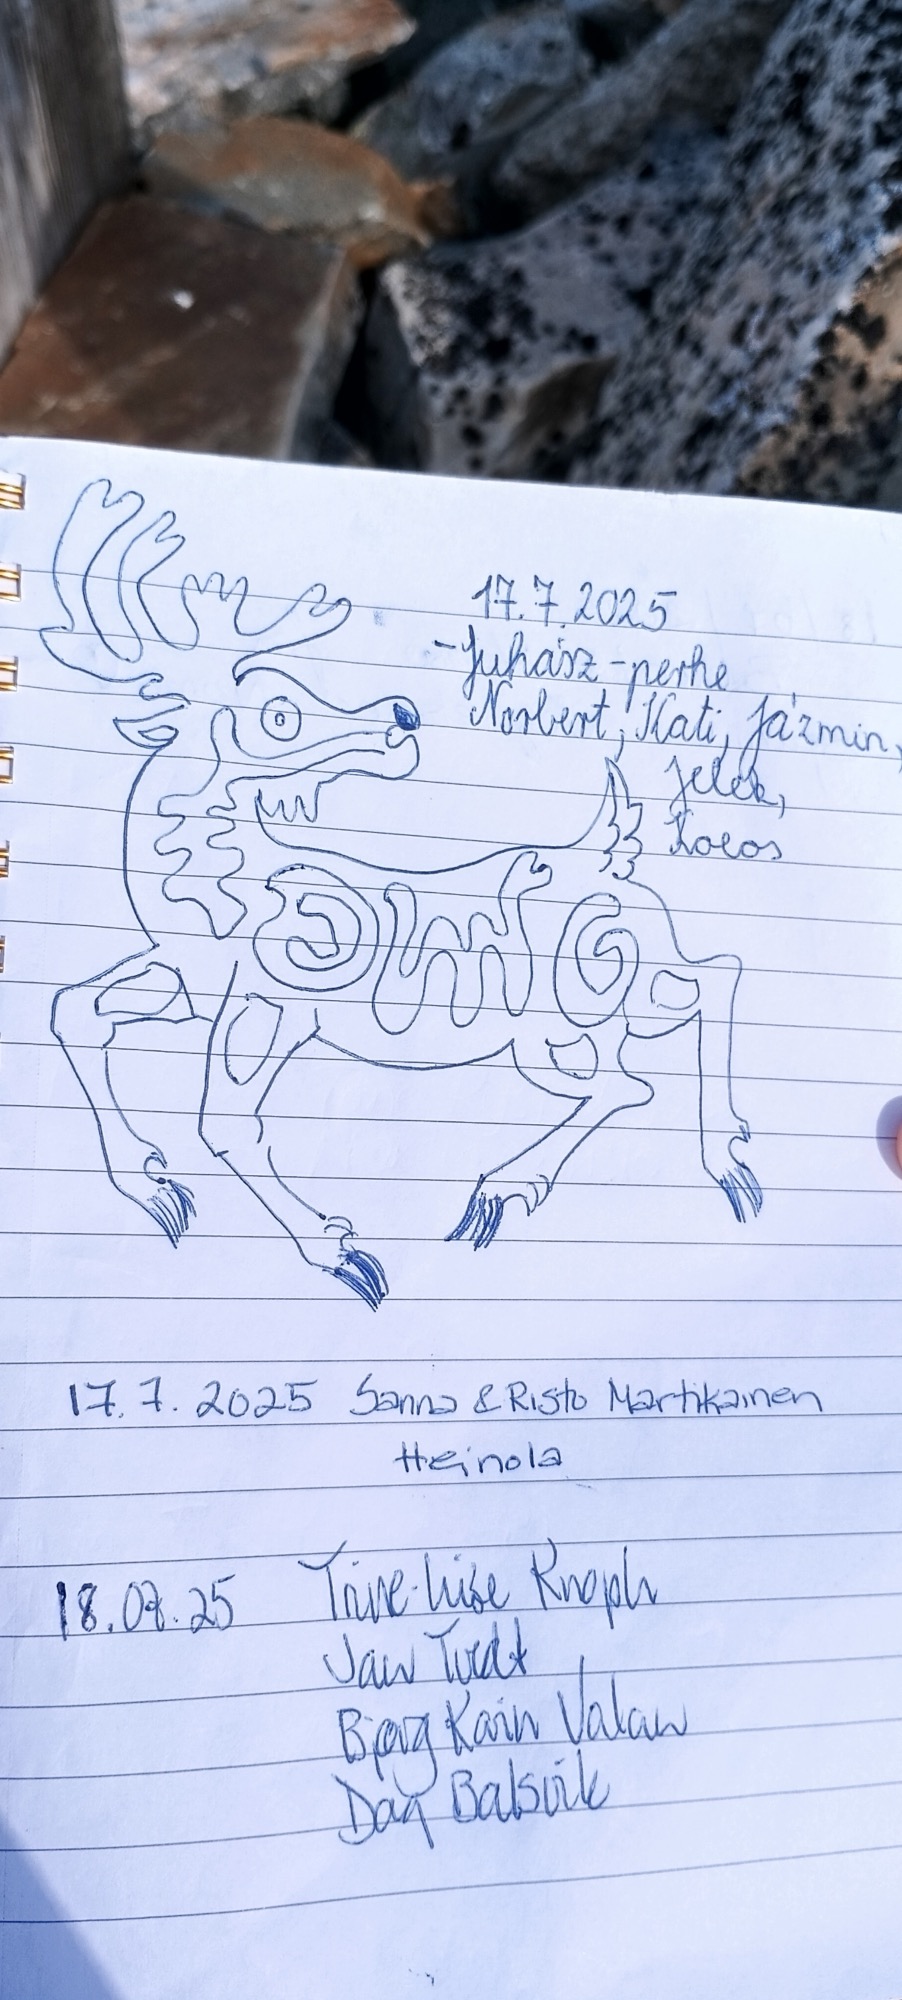 17.7.2025
-Juhász-perhe
Norbert, Kati, Jázmin,
Jelek,
17.7.2025 Sanna & Risto Martikainen
Heinola
18.07.25 Trine-Lise Knoph
Jan Tvedt
Bjørg Karin Valan
Dag Balsvik